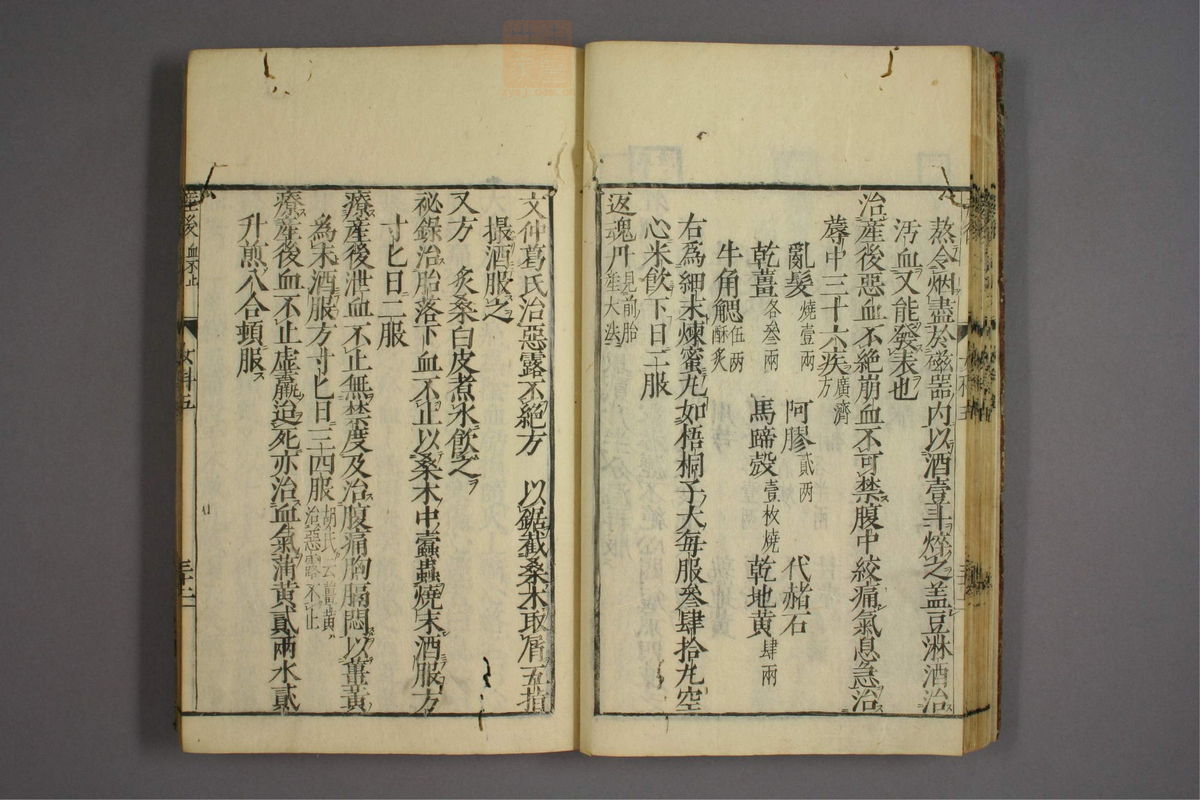 熬令烟盡於磁器内以酒壹斗焠之盖豆淋酒治
汚血又能發表也
治産後惡血不絶崩血不可禁腹中絞痛氣息急治
蓐中三十六疾廣濟方
亂髮燒壹兩 阿膠貳两 代赭石
乾薑各叁兩 馬蹄殻壹枚燒 乾地黄肆兩
牛角䚡伍两酥炙
右爲細末煉蜜丸如梧桐子大每服叁肆拾丸空
心米飲下日二服
返魂丹見前胎産大法
文仲葛氏治惡露不絶方 以鋸截桑木取屑五指
撮酒服之
又方 炙桑白皮煮水飲之
祕録治胎落下血不止以桑木中蠹蟲燒末酒服方
寸匕日二服
療産後泄血不止無禁度及治腹痛胸膈悶以薑黄
為末酒服方寸匕日三四服胡氏云薑黄治惡露不止
療産後血不止虚羸迨死亦治血氣蒲黄貳兩水貳
升煎八合頓服
産後 血不止 女科五